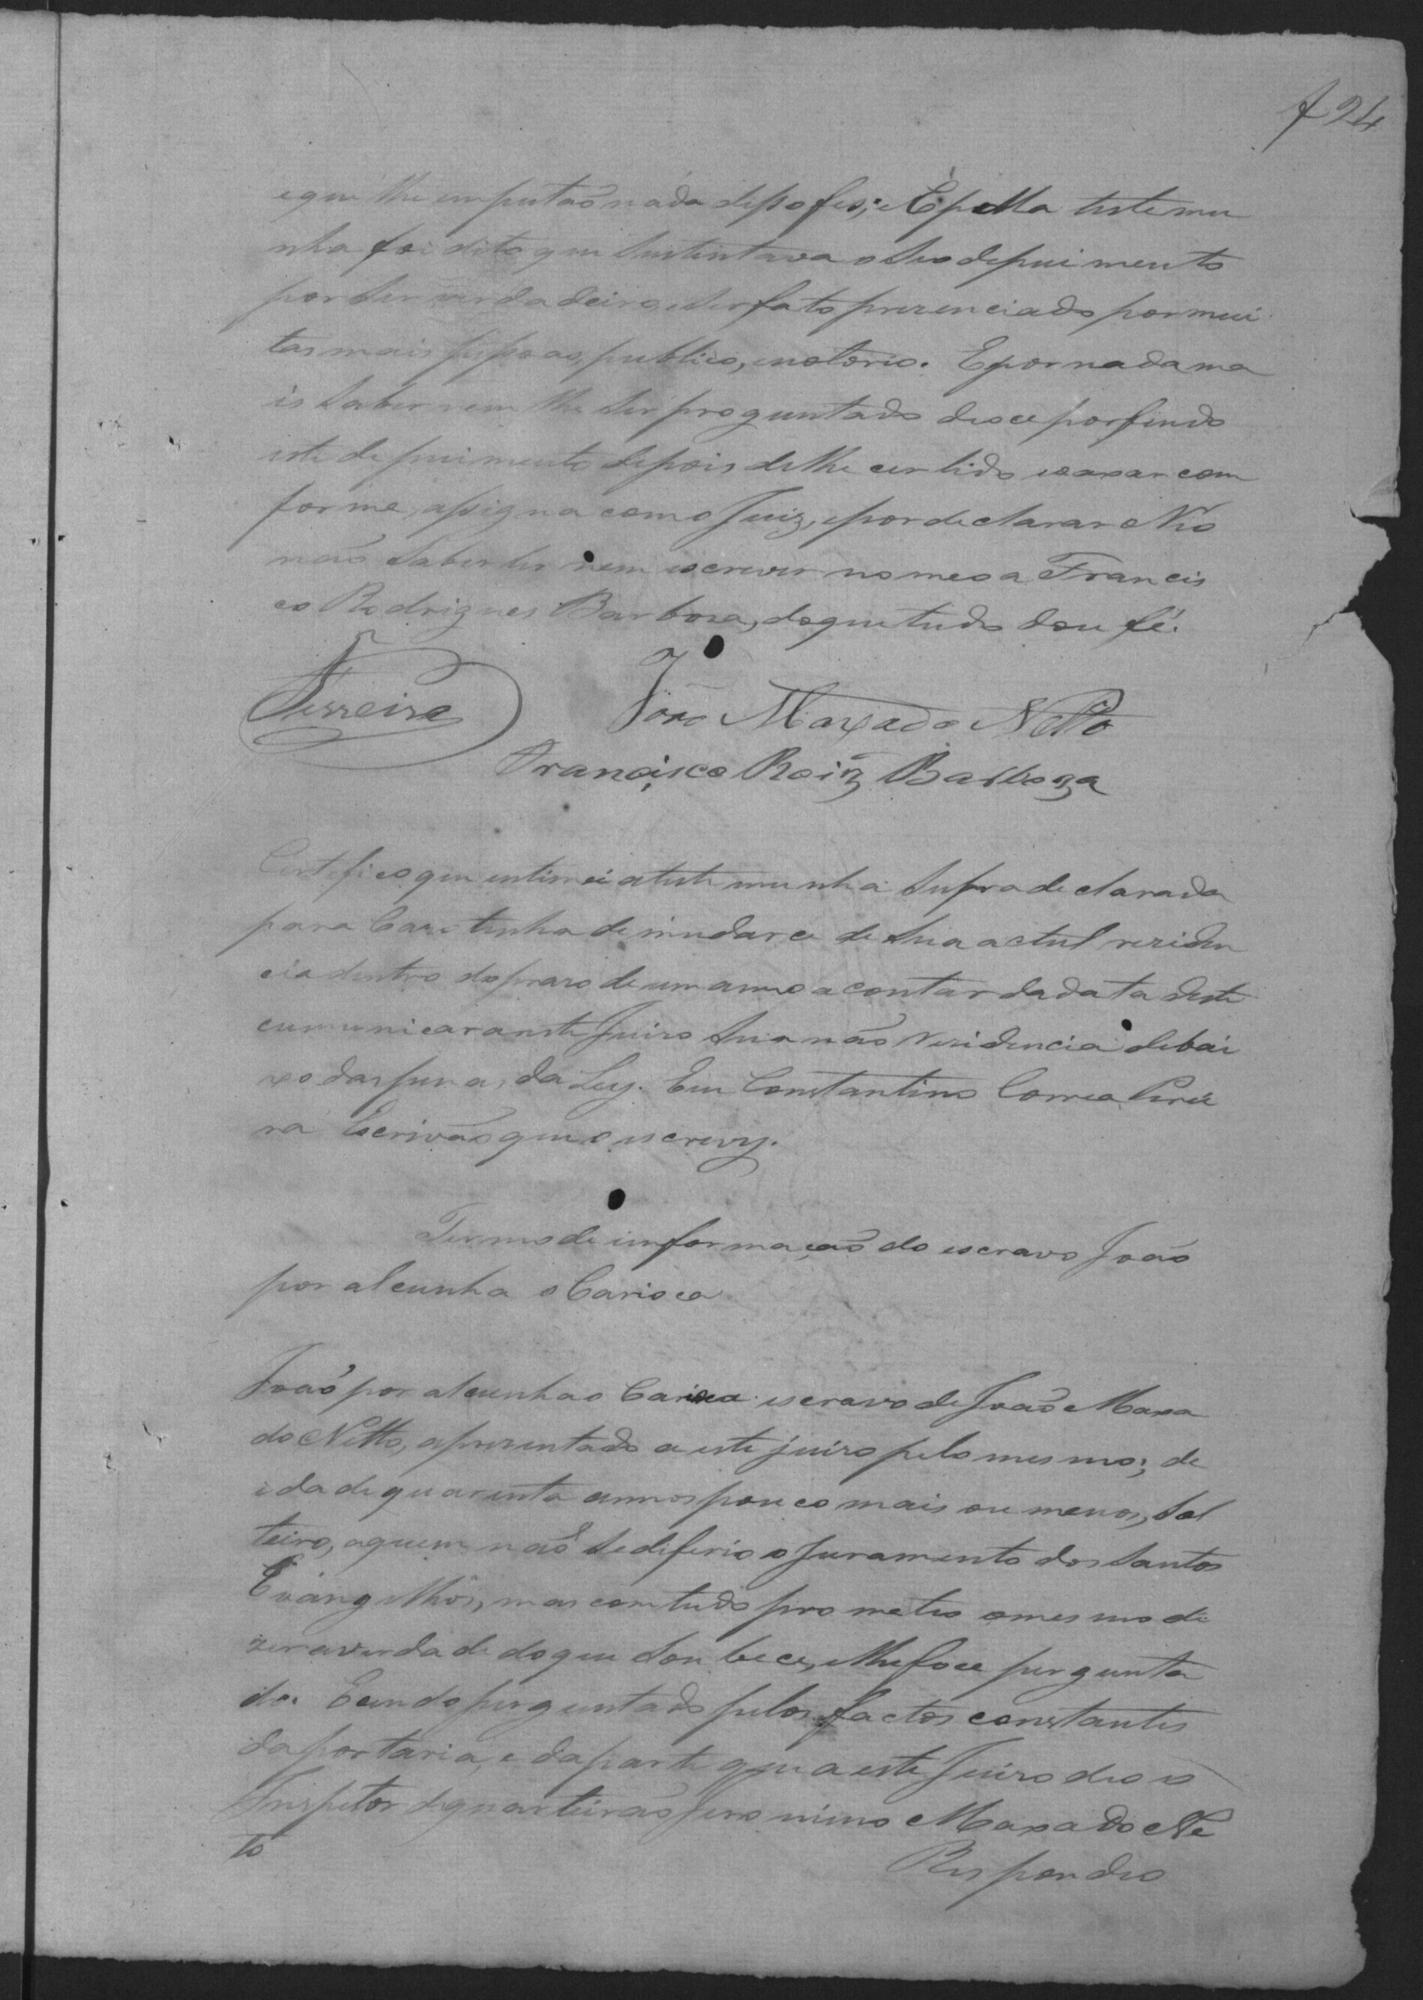 f 24
e que lhe imputão nada disso fes; E pella testemu
nha foi dito que sustentava o seo depuimento
por ser verdadeiro e ser fato prezenciado por mui
tas mais pessoas, publico, enotorio. E por nada ma
is saber nem lhe ser proguntado deoce por findo
este depuimento depois delhe ser lido eaxar com
forme, assigna com o Juiz, e por declarar o Réo
não saber ler nem escrever nomeoa Francis
co Rodrigues Barboza, doque tudo dou fé.
Ferreira João Maxado Netto
Francisco Roiz Barboza
Certifico que intimei a testemunha supra declarada
para Caso tenha de mudarce de sua actul reziden
cia dentro do prazo de um anno a contar da data deste
cumunicar a este Juizo sua residencia debai
xo das penas da Ley. Eu Constantino Correa Perei
ra Escrivão que o escrevy.
Termo de informação do escravo João
por alcunha o Carioca
João por alcunha o Carioca escravo de João Maxa
do Netto, aprezentado a este juizo pelo mesmo; de
idade quarenta annos pouco mais ou menos, Sol
teiro, aquem não se diferio o Juramento dos Santos
Evangelhos, mas comtudo prometeo o mesmo di
zer a verdade do que soubece, elhe foce pergunta
do. E cendo perguntado pelos factos constantes
da portaria, e da parte que a este Juizo deo o
Inspetor de quarteirão Jeronimo Maxado Ne
to
Respondeo